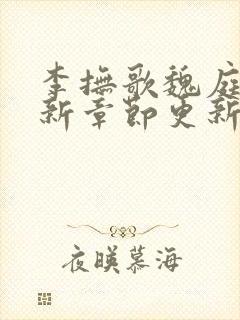 李撫歌魏庭
新章節更新
夜暎慕海